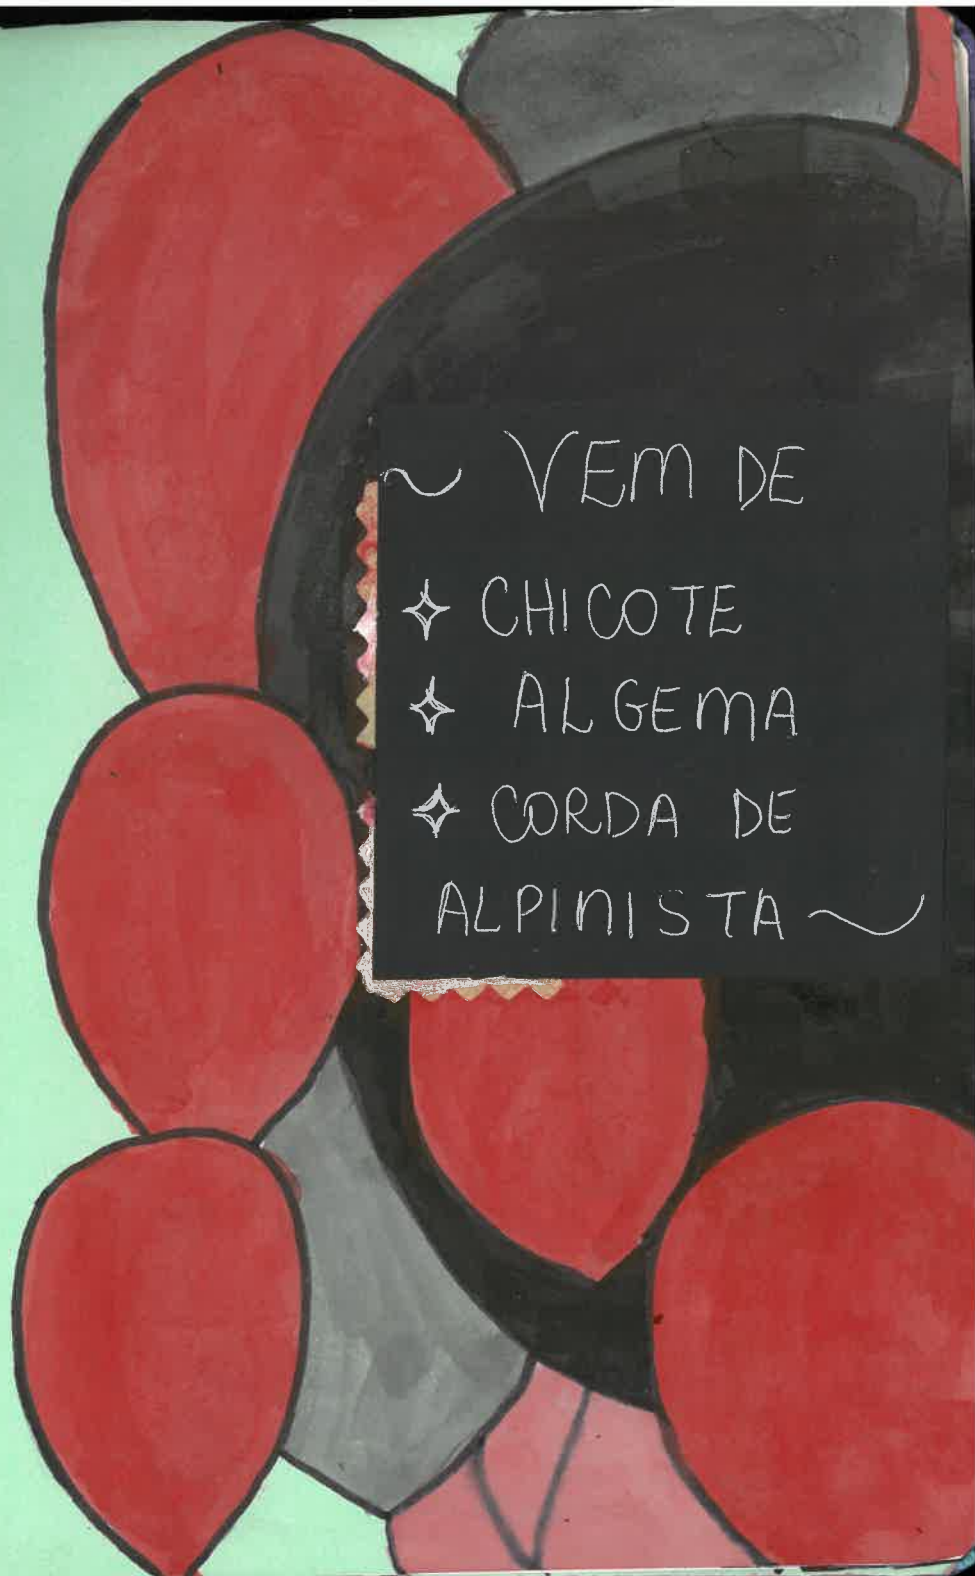 ~ VEM DE
✧ CHICOTE
✧ ALGEMA
✧ CORDA DE
ALPINISTA ~